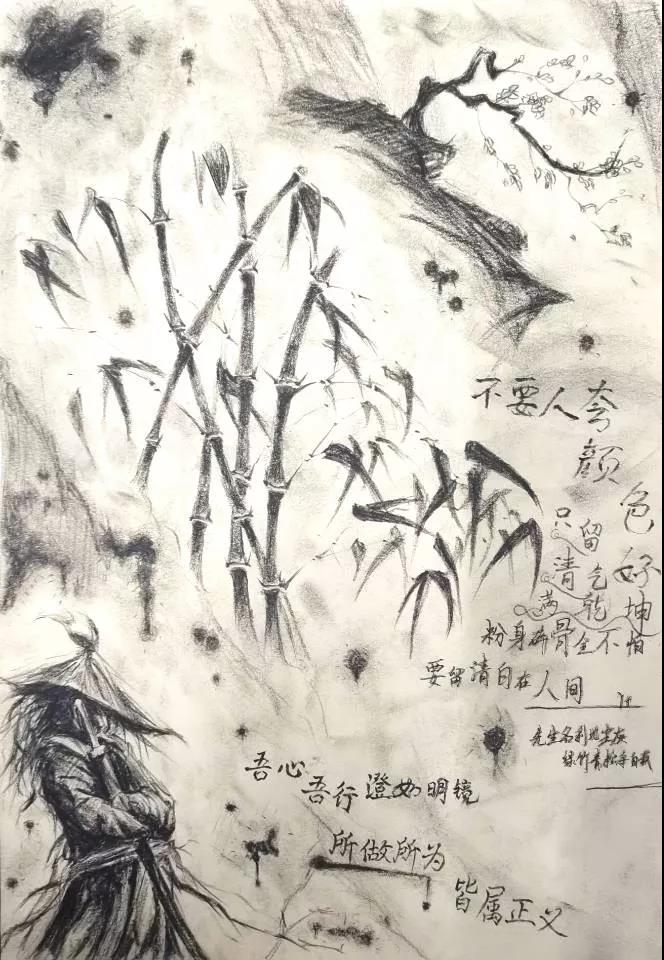 不要人夸颜色好
只留清气满乾坤
粉身碎骨全不怕
要留清白在人间
先生名利比尘灰
绿竹青松
吾心吾行澄如明镜
所做所为
皆属正义